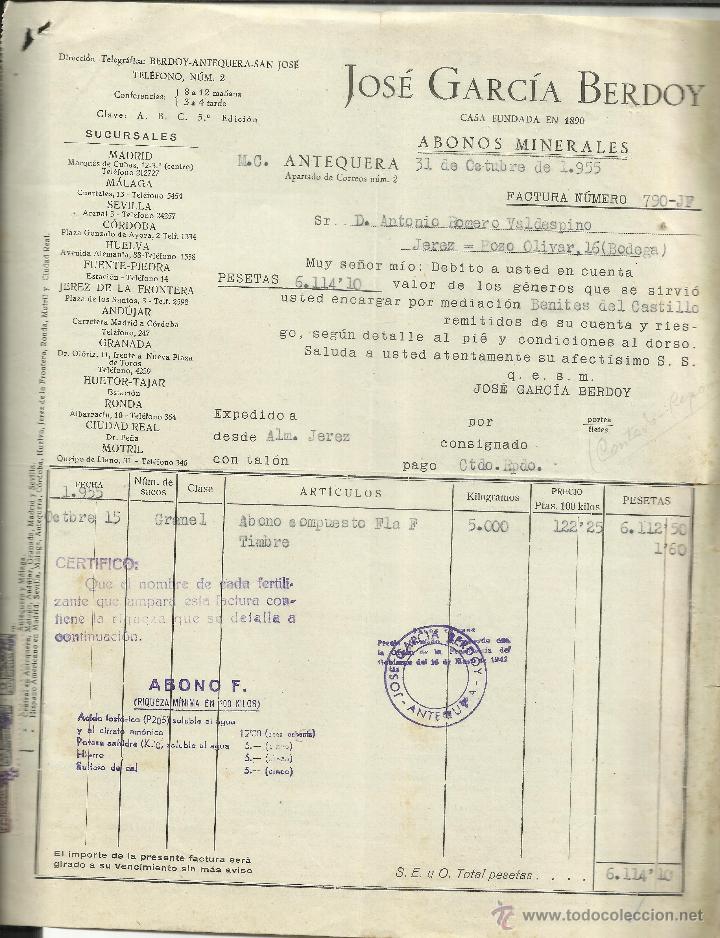 Dirección Telegráfica: BERDOY-ANTEQUERA-SAN JOSÉ
TELÉFONO, NÚM. 2
Conferencias: 8 a 12 mañana
3 a 4 tarde
Clave: A. B. C. 5.ª Edición
JOSÉ GARCÍA BERDOY
CASA FUNDADA EN 1890
ABONOS MINERALES
SUCURSALES
MADRID
Marqués de Cubas, (centro)
Teléfono 212727
MÁLAGA
Cuarteles, 13 - Teléfono 5454
SEVILLA
Arenal 3 - Teléfono 24257
CÓRDOBA
Plaza Gonzalo de Ayora, 2 Telf. 1334
HUELVA
Avenida Alemania, 88 - Teléfono 1558
FUENTE-PIEDRA
Estación - Teléfono 14
JEREZ DE LA FRONTERA
Plaza de los Santos, 3 - Telf. 2598
ANDÚJAR
Carretera Madrid a Córdoba
Teléfono, 247
GRANADA
Dr. Olóriz, 11, frente a Nueva Plaza
de Toros
Teléfono, 4259
HUETOR-TAJAR
Estación
RONDA
Albarracín, 10 - Teléfono 364
CIUDAD REAL
Dr. Peña
MOTRIL
Queipo de Llano, 31 - Teléfono 346
M.C. ANTEQUERA 31 de Octubre de 1.955
Apartado de Correos núm. 2
FACTURA NÚMERO 790-JF
Sr. D. Antonio Romero Valdespino
Jerez = Pozo Olivar, 16 (Bodega)
Muy señor mío: Debito a usted en cuenta
PESETAS 6.114'10 valor de los géneros que se sirvió
usted encargar por mediación Benites del Castillo
remitidos de su cuenta y ries-
go, según detalle al pié y condiciones al dorso.
Saluda a usted atentamente su afectísimo S. S.
q. e. s. m.
JOSÉ GARCÍA BERDOY
Expedido a por portes
fletes
desde Alm. Jerez consignado
con talón pago Ctdo. Rpdo.
FECHA Núm. de sacos Clase ARTÍCULOS Kilogramos PRECIO Ptas. 100 kilos PESETAS
1.955
Octbre 15 Granel Abono compuesto Fla F 5.000 122'25 6.112'50
Timbre 1'60
CERTIFICO:
Que el nombre de cada fertili-
zante que ampara esta factura con-
tiene la riqueza que se detalla a
continuación.
JOSE GARCÍA BERDOY - ANTEQUERA
ABONO F.
(RIQUEZA MÍNIMA EN 100 KILOS)
Acido fosfórico (P2O5) soluble al agua
y al citrato amónico
Potasa anhidra soluble al agua 5.— (cinco)
Hierro 5.— (cinco)
Sulfato de cal 5.— (cinco)
El importe de la presente factura será
girado a su vencimiento sin más aviso
S. E. u O. Total pesetas . . . . 6.114'10
© www.todocoleccion.net